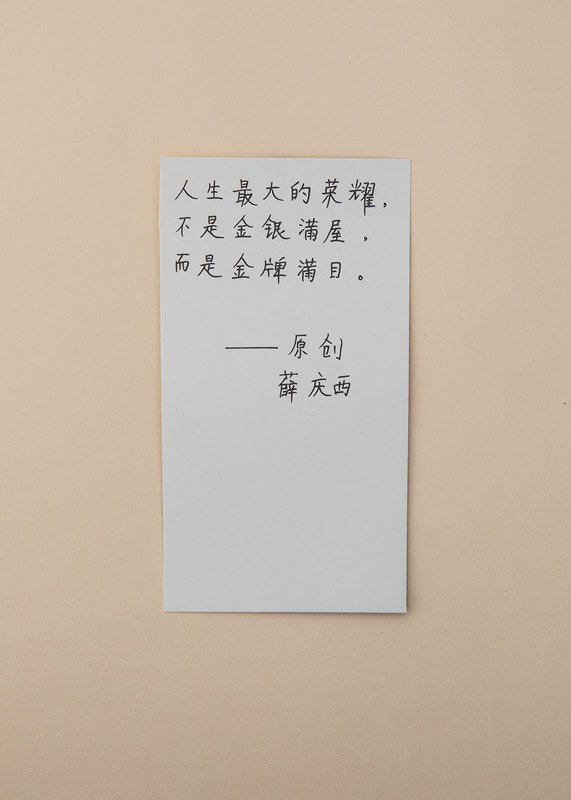 人生最大的荣耀,
不是金银满屋,
而是金牌满目。
——原创
薛庆西